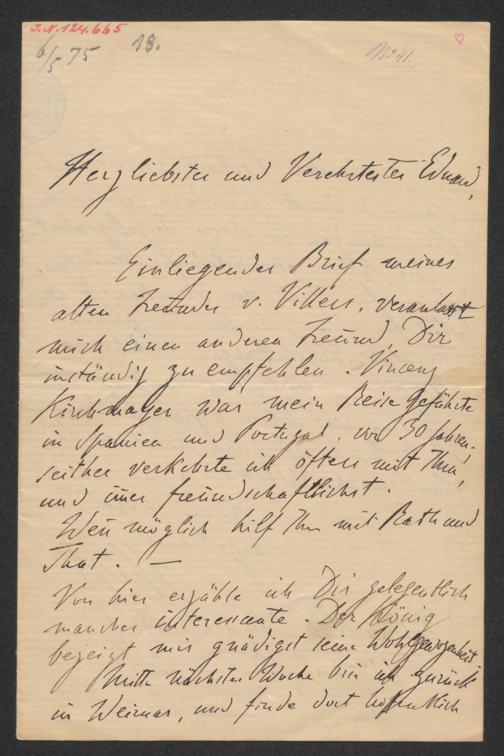 I.N. 124.665
6/5 75 18.
No 41.
Herzliebster und Verehrtester Eduard,
Einliegender Brief meines
alten Freundes v. Villers, veranlasst
mich einen anderen Freund, Dir
inständig zu empfehlen. Vincenz
Kirchmayer war mein Reise Gefährte
in Spanien und Portugal, vor 30 Jahren.
seither verkehrte ich öfters mit Ihm,
und im̄er freundschaftlichst.
Wen̄ möglich hilf Ihm mit Rath und
That. —
Von hier erzähle ich Dir gelegentlich
manches interessante. Der König
bezeigt mir gnädigst seine Wohlgewogenheit
Mitte nächster Woche bin ich zurück
in Weimar, und finde dort hoffentlich